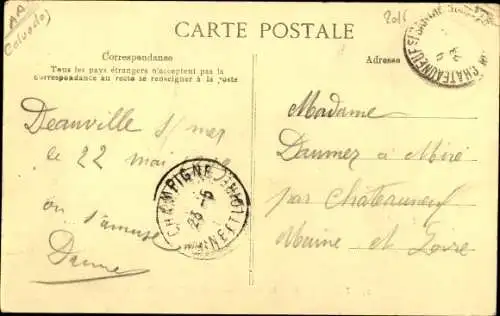 CARTE POSTALE
Correspondance
Tous les pays étrangers n'acceptent pas la
correspondance au recto se renseigner à la poste
Adresse
(Calvados)
2016
CHATEAUNEUF S/SARTHE
Deauville s/mer
le 22 mai
on s'amuse
CHAMPIGNE
(MAINE-ET-LOIRE)
23 -5
Madame
Daumer à Miré
par Châteauneuf
Maine et Loire